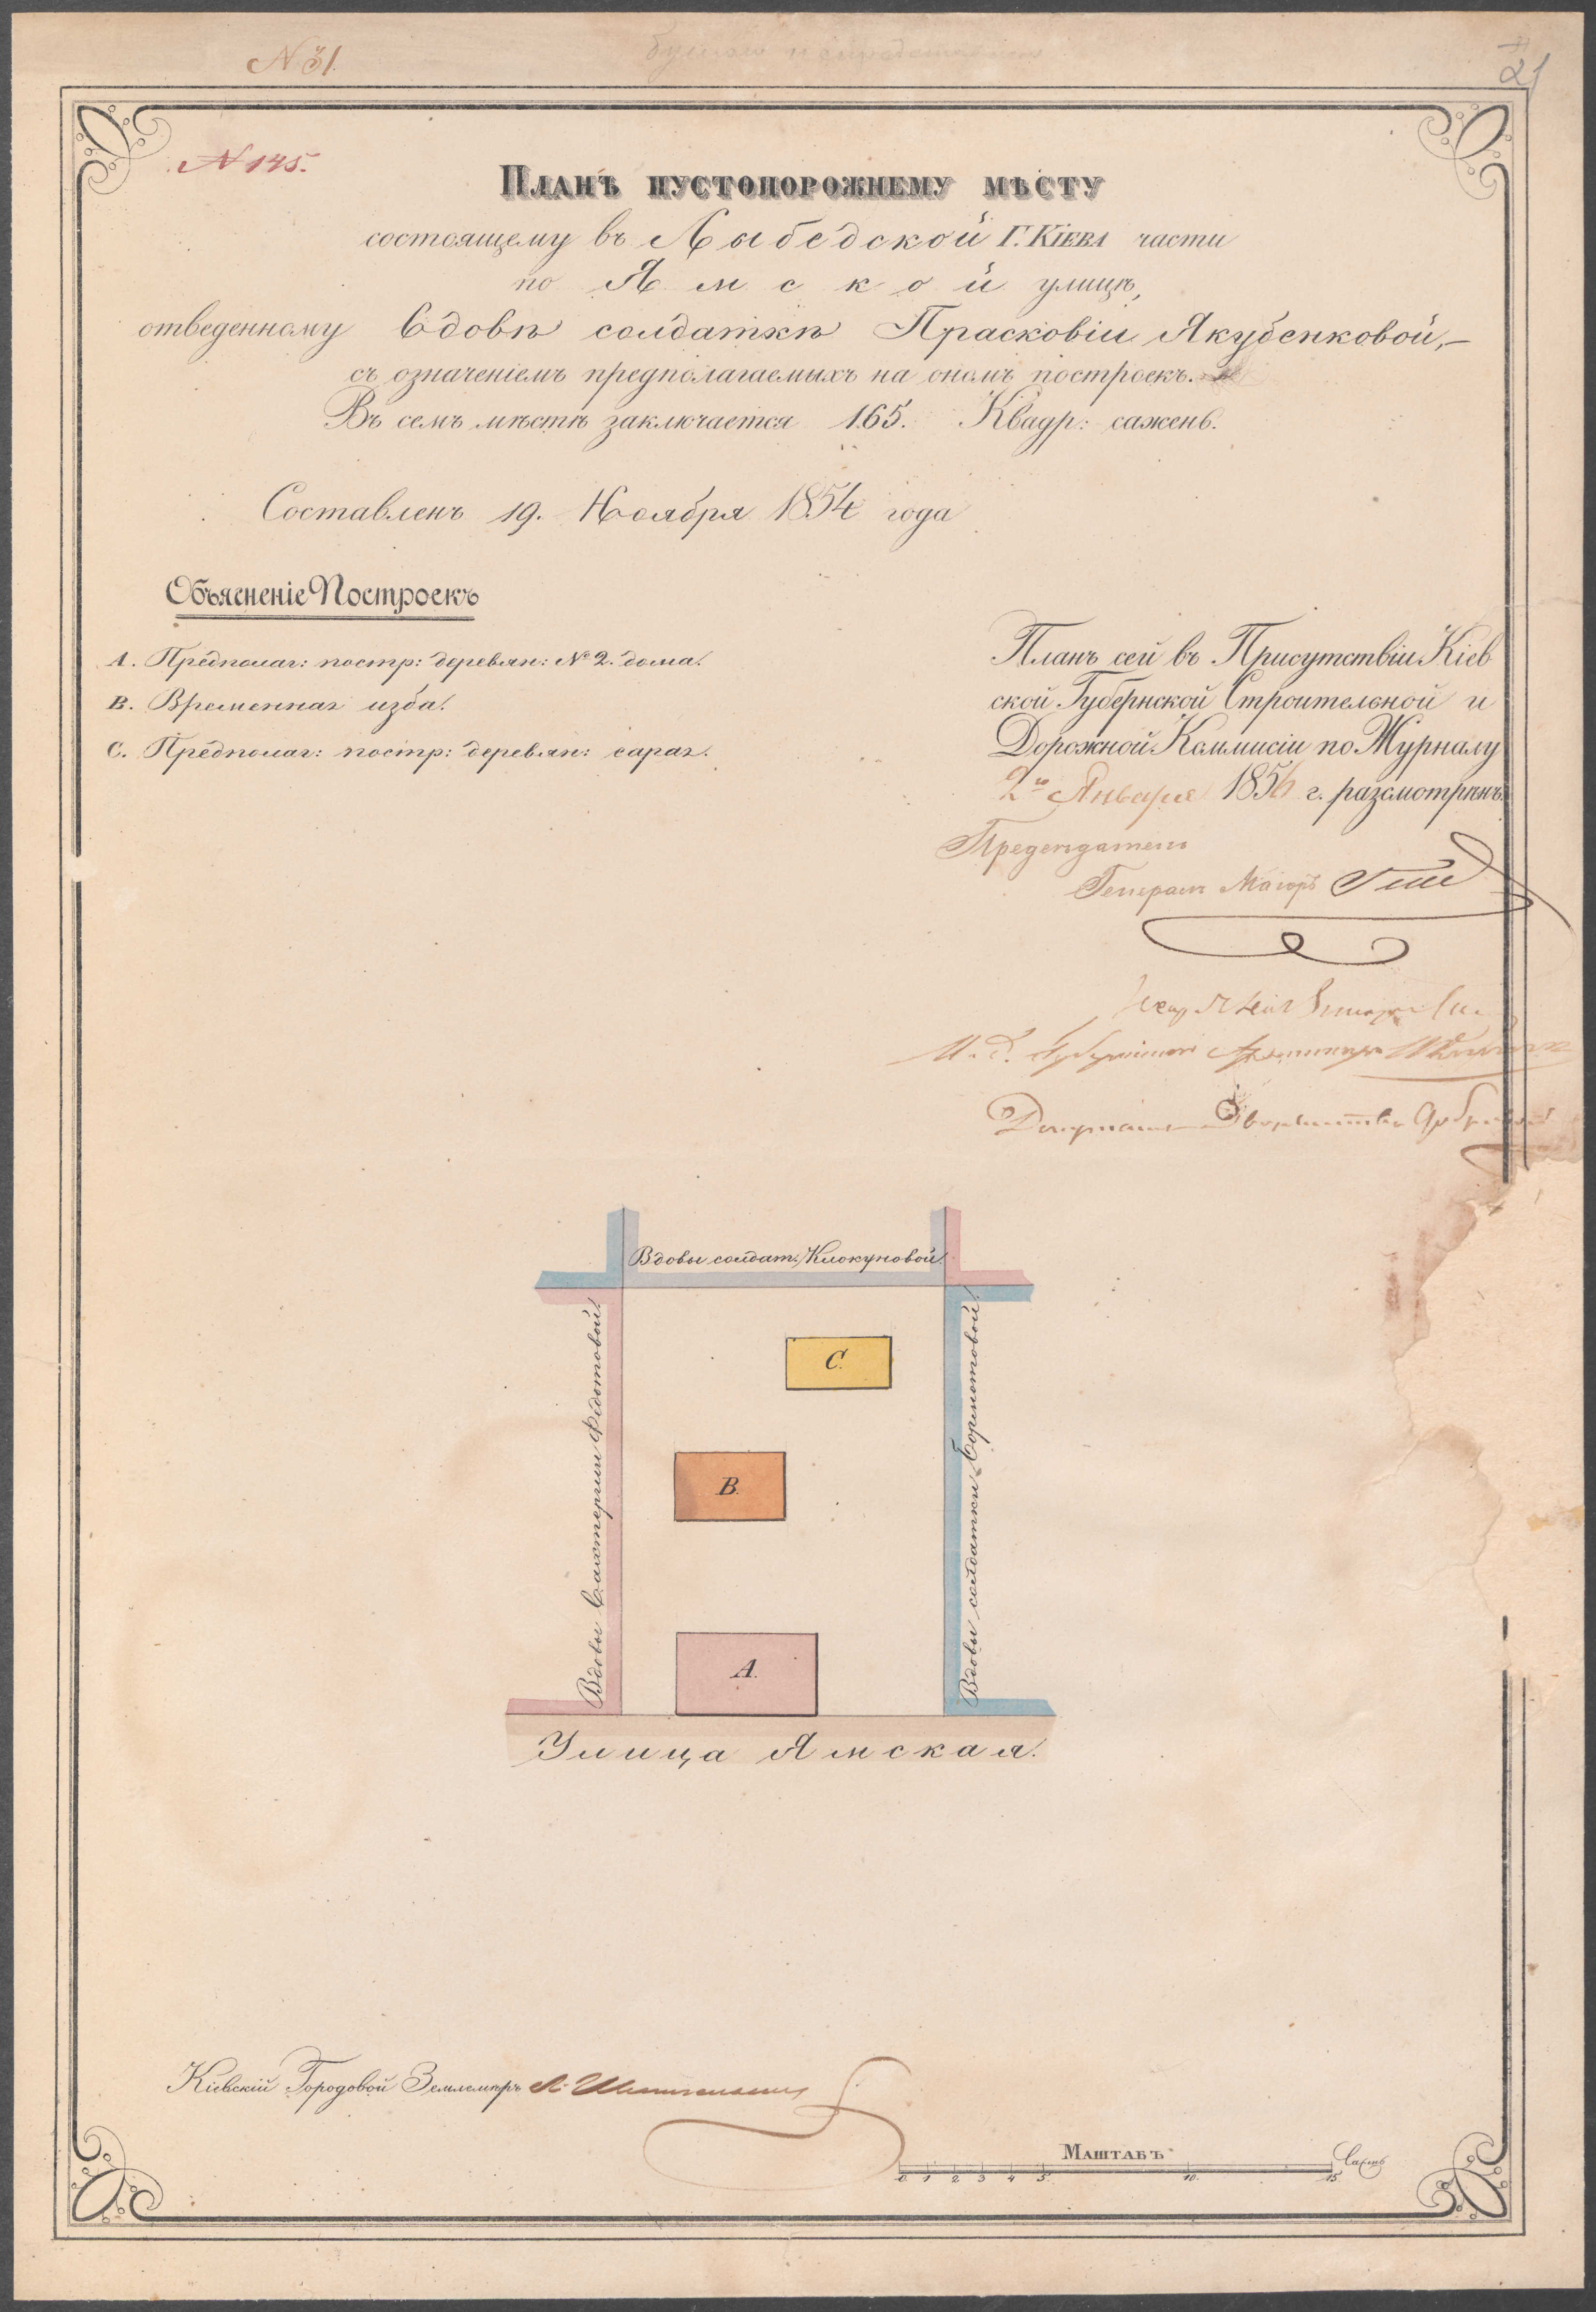 N 31.
21
N 145.
Планъ пустопорожнему мѣсту
состоящему въ Лыбедской Г. Кіева части
по Ямской улицѣ,
отведенному Вдовѣ солдаткѣ Прасковіи Якубенковой,—
съ означеніемъ предполагаемыхъ на ономъ построекъ.
Въ семъ мѣстѣ заключается 165. Квадр: сажень.
Составленъ 19. Ноября 1854 года
Объясненіе Построекъ
A. Предполаг: постр: деревян: № 2. дома.
B. Временная изба.
C. Предполаг: постр: деревян: сарая.
Планъ сей въ Присутствіи Кіев
ской Губернской Строительной и
Дорожной Коммисіи по Журналу
2го Января 1856 г. разсмотрѣнъ.
Предсѣдатель
Генералъ Маіоръ
И. Д. Губернскаго Архитектора
Депутатъ Дворянства
Вдовы солдат: Клокуновой.
Вдовы Федотовой.
Вдовы солдатки
C.
B.
A.
Улица Ямская.
Кіевскій Городовой Землемѣръ
Маштабъ
0 1 2 3 4 5 10 15 Саженъ